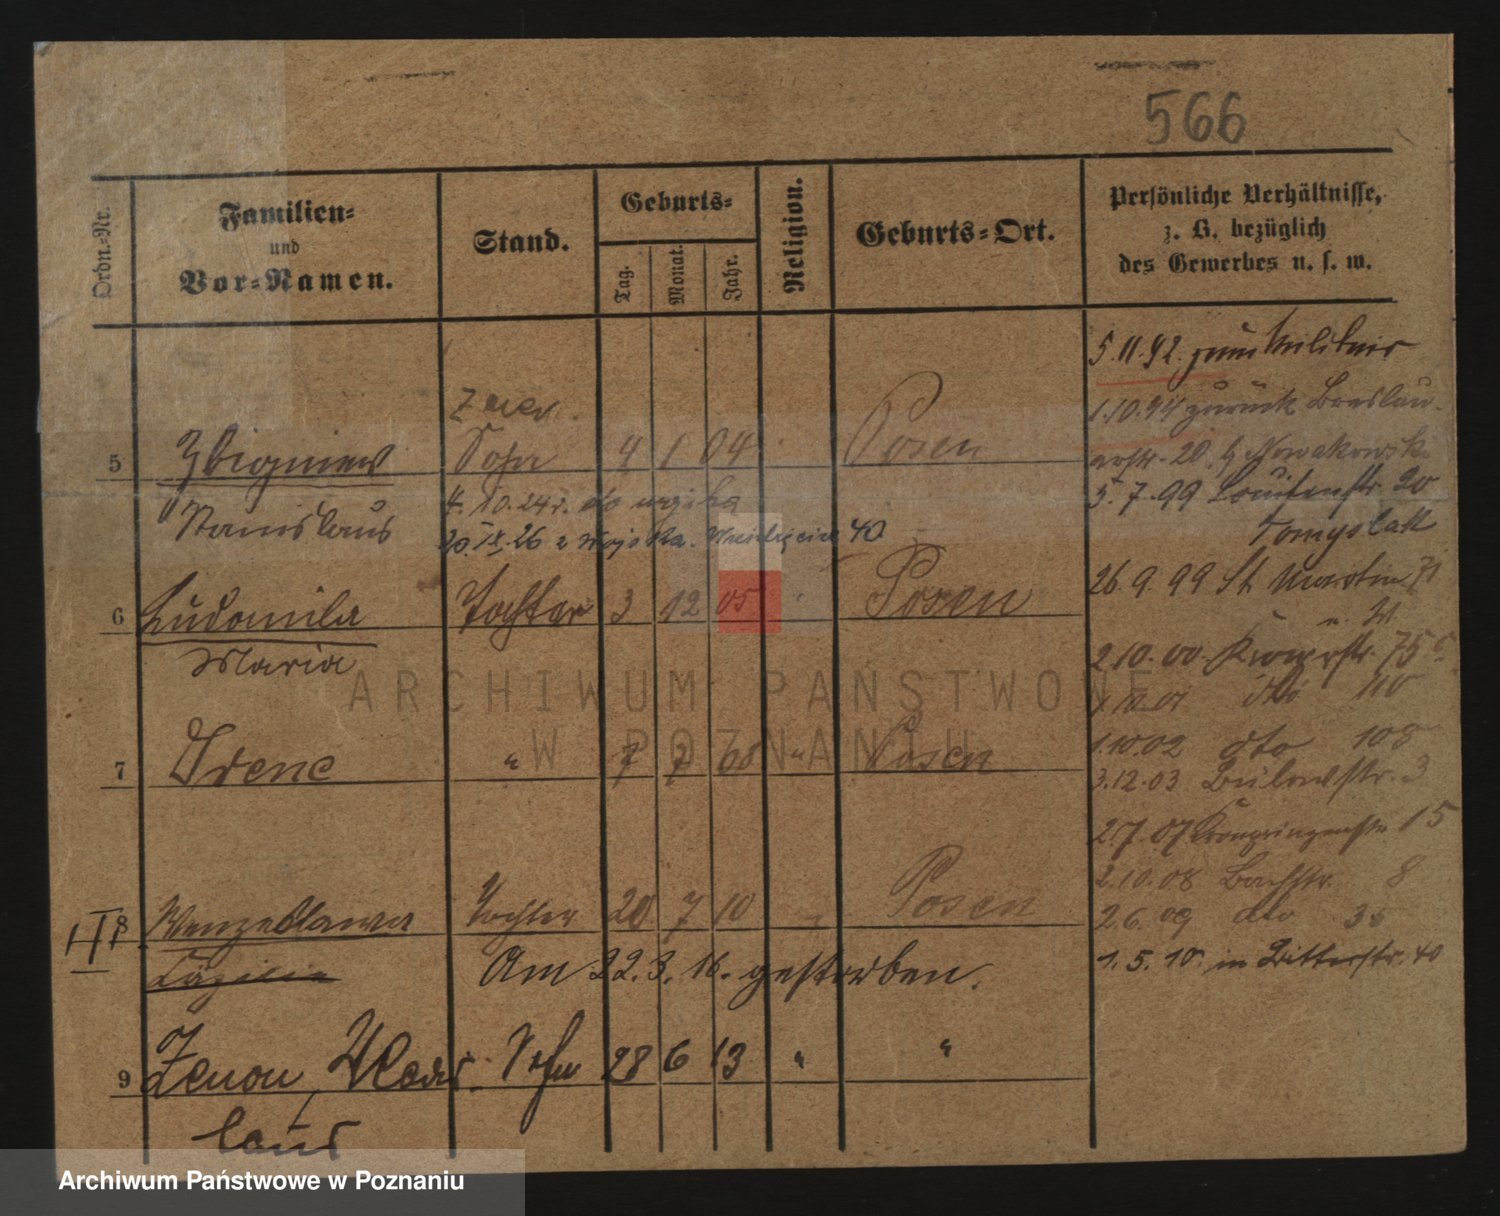 566
Ordn.-Nr.
Familien-
und
Vor-Namen.
Stand.
Geburts-
Tag.
Monat.
Jahr.
Religion.
Geburts-Ort.
Persönliche Verhältnisse,
z. B. bezüglich
des Gewerbes u. s. w.
5.11.92. zum Militair
1.10.94 zurück Breslau-
5 Zbigniew Sohn 4 1 04 Posen
Stanislaus
4. 10. 24 r. do wojska
20. IX. 26 z wojska. 40
5.7.99 Louisenstr. 20
26.9.99 St. Martin 71
6 Ludomila Tochter 3 12 05 Posen
Maria
2.10.00 75
dto 110
7 Irene " 7 7 08 " Posen
1.10.02 dto 108
3.12.03 Bülowstr. 3
2.7.07 Kronprinzenstr. 15
2.10.08 Bachstr. 8
8 Wenzeslawa Tochter 20 7 10 Posen
Cäzilie
2.6.09 dto 35
Am 22.3.16. gestorben.
1.5.10. in Bitterstr. 40
9 Zenon, Wladis- Sohn 28 6 13 " "
laus
ARCHIWUM PAŃSTWOWE
W POZNANIU
Archiwum Państwowe w Poznaniu